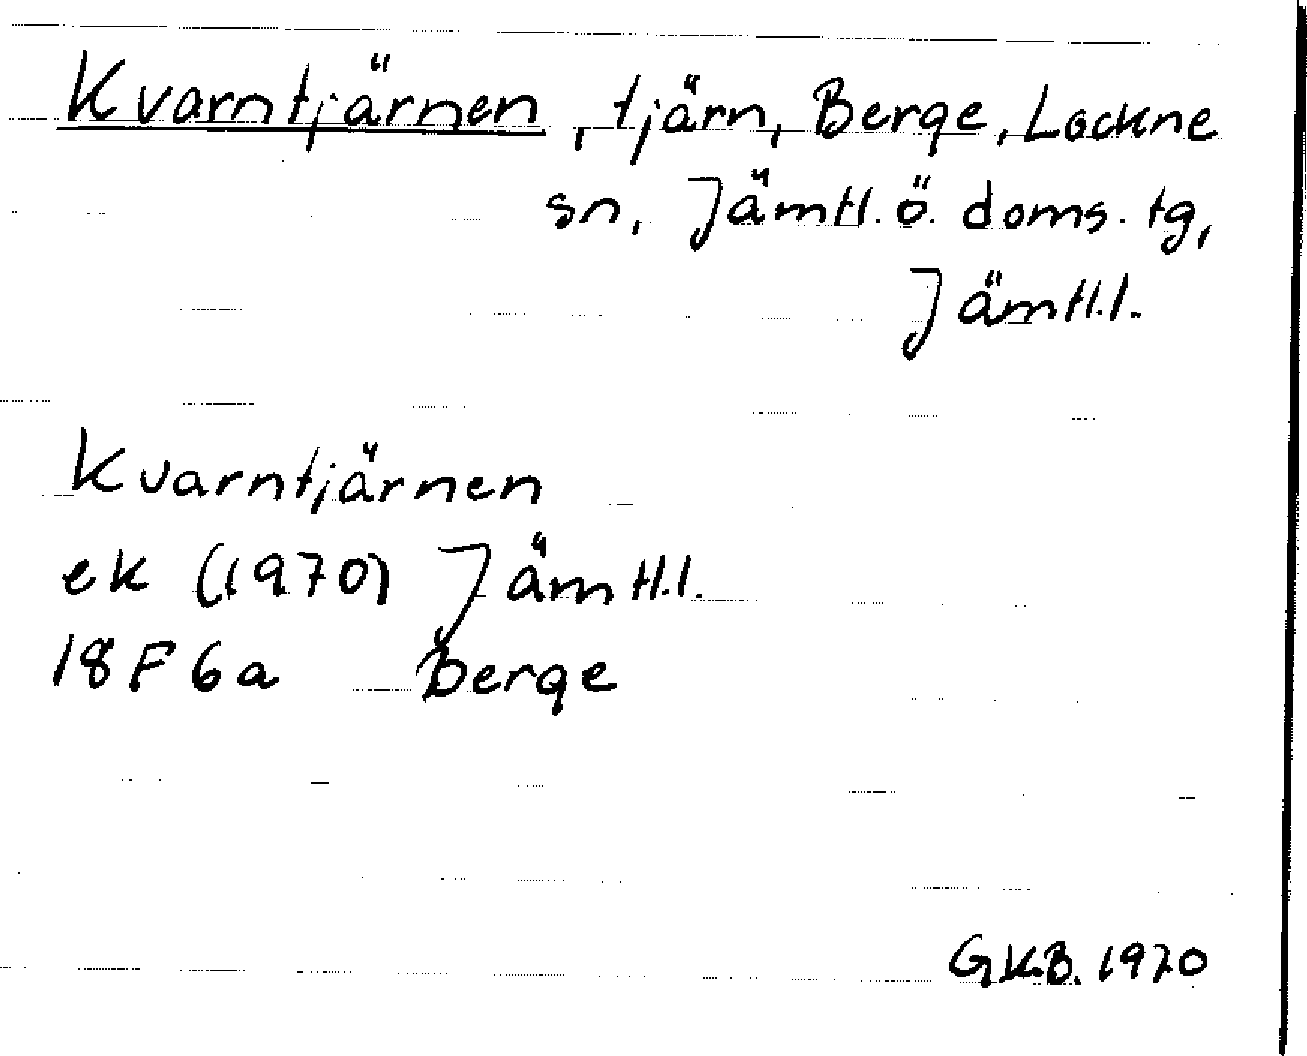 Kvarntjärnen, tjärn, Berge, Lockne
sn, Jämtl. ö. doms. tg,
Jämtl.l.
Kvarntjärnen
ek (1970) Jämtl.l.
18F6a Berge
G.K.B. 1970